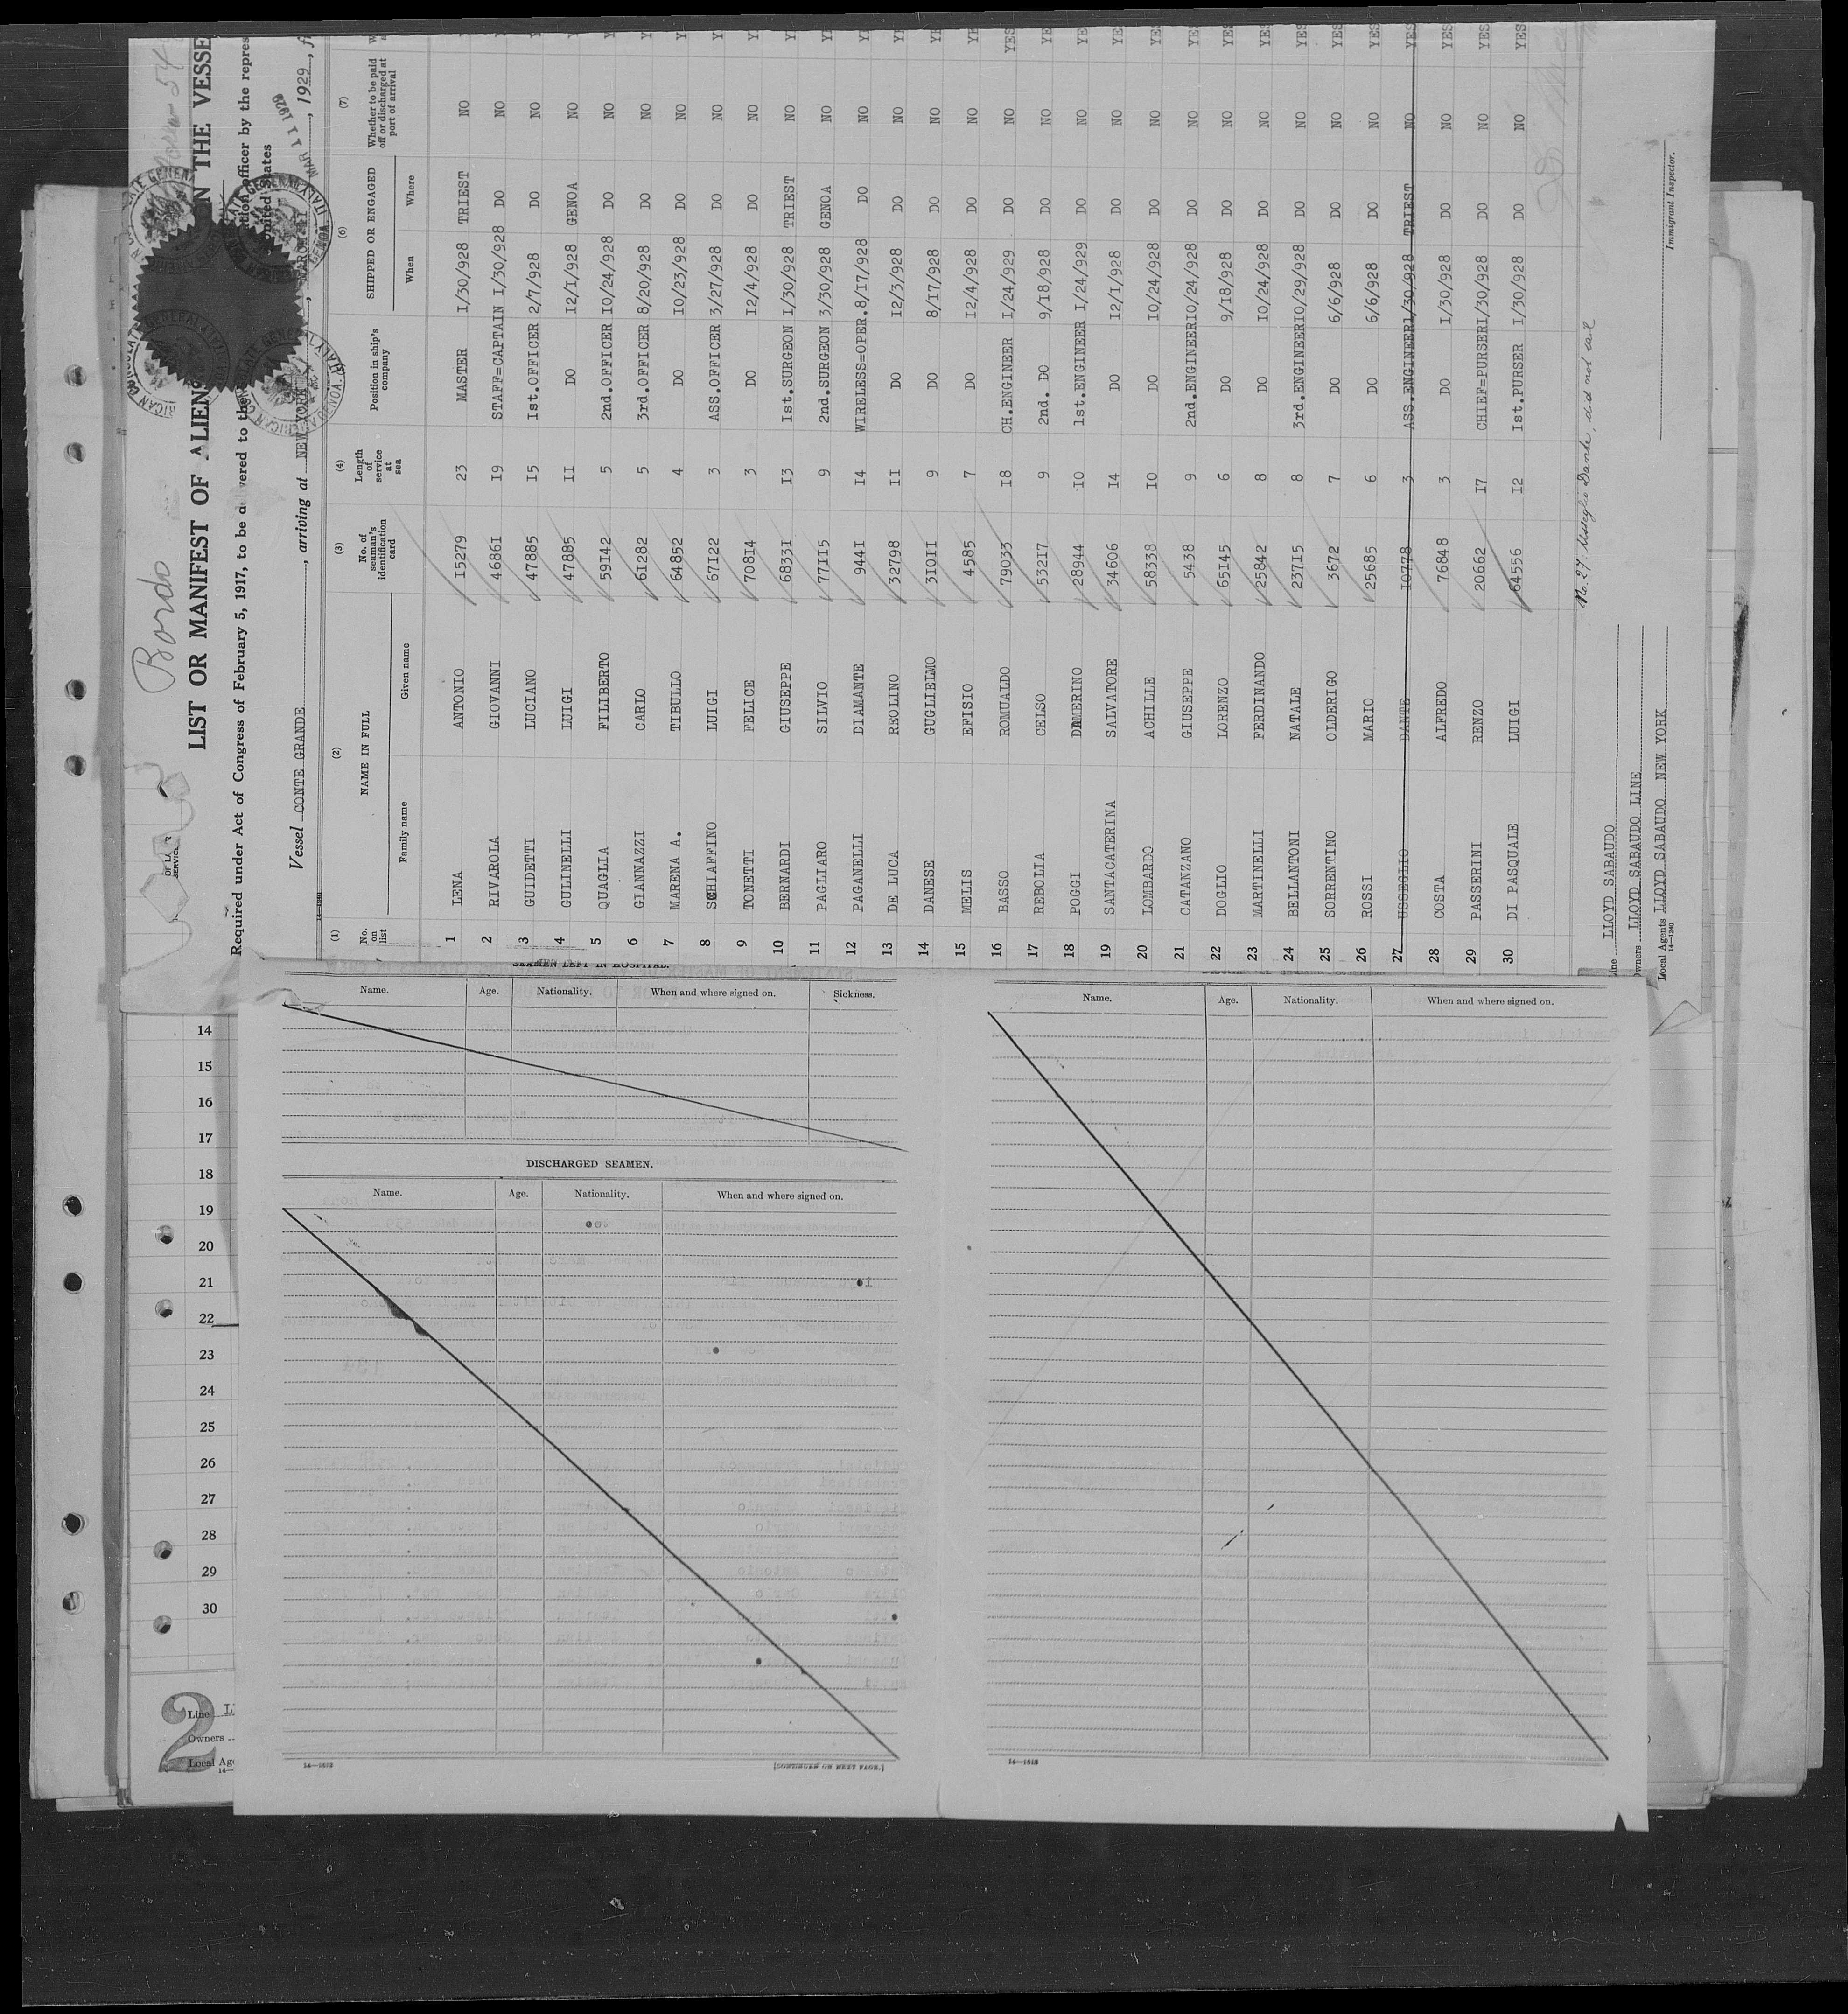 Bordo
LIST OR MANIFEST OF ALIENS
N THE VESSE
Required under Act of Congress of February 5, 1917, to be de vered to the
ation officer by the repres
United States
MAR 11 1929
Vessel CONTE GRANDE, arriving at NEW YORK, MARCH 11, 1929, fr
(1) (2) (3) (4) (6) (7)
No. on list NAME IN FULL No. of seaman's identification card Length of service at sea Position in ship's company SHIPPED OR ENGAGED Whether to be paid off or discharged at port of arrival
Family name Given name When Where
1 LENA ANTONIO 15279 23 MASTER I/30/928 TRIEST NO Y
2 RIVAROLA GIOVANNI 4686I I9 STAFF=CAPTAIN I/30/928 DO NO Y
3 GUIDETTI LUCIANO 47885 I5 Ist.OFFICER 2/7/928 DO NO YE
4 GULINELLI LUIGI 47885 II DO I2/I/928 GENOA NO Y
5 QUAGLIA FILIBERTO 59I42 5 2nd.OFFICER IO/24/928 DO NO Y
6 GIANNAZZI CARLO 6I282 5 3rd.OFFICER 8/20/928 DO NO Y
7 MARENA A. TIBULLO 64852 4 DO IO/23/928 DO NO Y
8 SCHIAFFINO LUIGI 67I22 3 ASS.OFFICER 3/27/928 DO NO Y
9 TONETTI FELICE 708I4 3 DO I2/4/928 DO NO YE
10 BERNARDI GIUSEPPE 6833I I3 Ist.SURGEON I/30/928 TRIEST NO Y
11 PAGLIARO SILVIO 77II5 9 2nd.SURGEON 3/30/928 GENOA NO YE
12 PAGANELLI DIAMANTE 944I I4 WIRELESS=OPER. 8/I7/928 DO NO YE
13 DE LUCA REOLINO 32798 II DO I2/3/928 DO NO YE
14 DANESE GUGLIELMO 3IOII 9 DO 8/I7/928 DO NO YE
15 MELIS EFISIO 4585 7 DO I2/4/928 DO NO YE
16 BASSO ROMUALDO 79033 I8 CH.ENGINEER I/24/929 DO NO YES
17 REBOLIA CELSO 532I7 9 2nd. DO 9/I8/928 DO NO YE
18 POGGI DAMERINO 28944 IO 1st.ENGINEER I/24/929 DO NO YES
19 SANTACATERINA SALVATORE 34606 I4 DO I2/I/928 DO NO YE
20 LOMBARDO ACHILLE 58338 IO DO IO/24/928 DO NO YE
21 CATANZANO GIUSEPPE 5438 9 2nd.ENGINEER IO/24/928 DO NO YES
22 DOGLIO LORENZO 65I45 6 DO 9/I8/928 DO NO YES
23 MARTINELLI FERDINANDO 25842 8 DO IO/24/928 DO NO YES
24 BELLANTONI NATALE 237I5 8 3rd.ENGINEER IO/29/928 DO NO YES
25 SORRENTINO OLDERIGO 3672 7 DO 6/6/928 DO NO YES
26 ROSSI MARIO 25685 6 DO 6/6/928 DO NO YES
27 USSEGLIO DANTE I0778 3 ASS.ENGINEER I/30/928 TRIEST NO YES
28 COSTA ALFREDO 76848 3 DO I/30/928 DO NO YES
29 PASSERINI RENZO 20662 I7 CHIEF=PURSER I/30/928 DO NO YES
30 DI PASQUALE LUIGI 64556 I2 Ist.PURSER I/30/928 DO NO YES
No. 27, Usseglio Dante, did not sail
Line LLOYD SABAUDO
Owners LLOYD SABAUDO LINE
Local Agents LLOYD SABAUDO NEW YORK
14—1240
Immigrant Inspector.
SEAMEN LEFT IN HOSPITAL.
Name. Age. Nationality. When and where signed on. Sickness.
DISCHARGED SEAMEN.
Name. Age. Nationality. When and where signed on.
[CONTINUED ON NEXT PAGE.]
Name. Age. Nationality. When and where signed on.
14
15
16
17
18
19
20
21
22
23
24
25
26
27
28
29
30
2
Line L
Owners
Local Age
14—